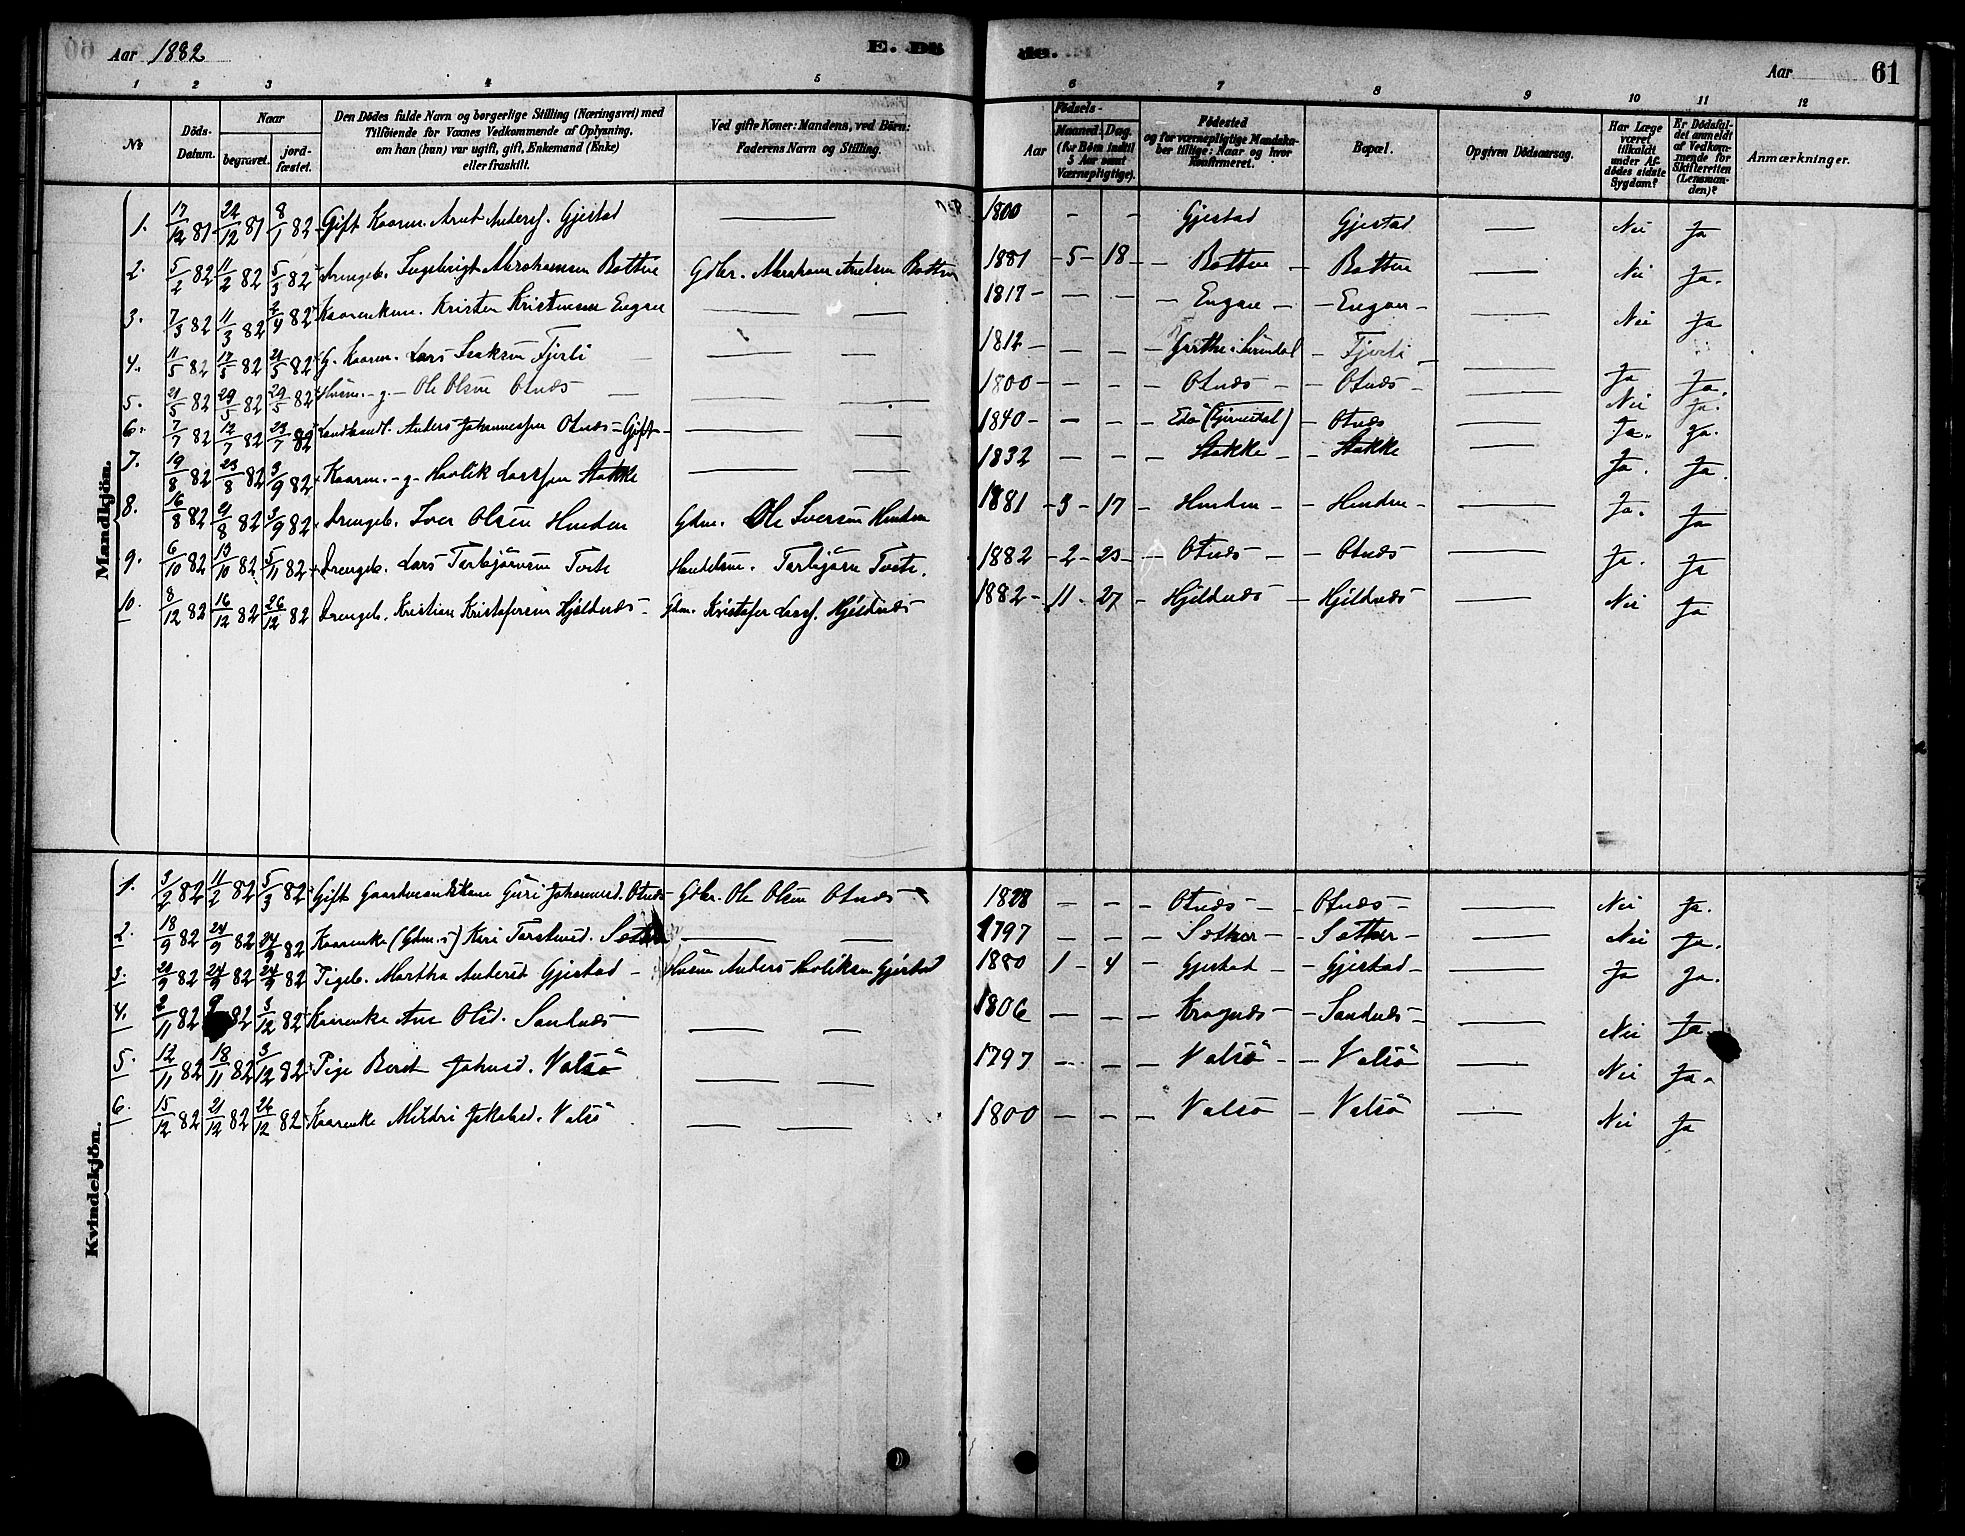 Aar 1882 E. Dö
de. Aar 61
1 2 3 4 5 6 7 8 9 10 11 12
No
Döds-Datum.
Naar
begravet.
jordfæstet.
Den Dödes fulde Navn og borgerlige Stilling (Næringsvei) med
Tilföiende for Voxnes Vedkommende af Oplysning,
om han (hun) var ugift, gift, Enkemand (Enke)
eller fraskilt.
Ved gifte Koner: Mandens, ved Börn:
Faderens Navn og Stilling.
Aar
Födsels-
Maaned. Dag.
(for Börn indtil
5 Aar samt
Værnepligtige).
Födested
og for værnepligtige Mandska-
ber tillige: Naar og hvor
Konfirmeret.
Bopæl.
Opgiven Dödsaarsag.
Har Læge
været
tilkaldt
under Af-
dödes sidste
Sygdom?
Er Dödsfal-
det anmeldt
af Vedkom-
mende for
Skifteretten
(Lensman-
den)?
Anmærkninger.
Mandkjön.
1. 17/12 81 22/12 81 8/1 82 Gift Kaarm. Arnt Anderss. Gjestad — 1800 — — Gjestad Gjestad — Nei Ja
2. 5/2 82 11/2 82 5/3 82 Drengeb. Ingebrigt Abrahamsen Botten Gdbr. Abraham Botten 1881 - 5 - 18 - Botten - Botten — Nei Ja.
3. 7/3 82 11/3 82 2/4 82 Kristen Kristensen Engan — — 1817 - — — Engan - - Engan - — Nei Ja
4. 11/5 82 17/5 82 21/5 82 G. Kaarm. Lars Isaksen Fjerli — — 1812 - — — - Fjerli — Ja Ja.
5. 21/5 82 29/5 82 29/5 82 Husm. - g - Ole Olsen Otnæs — — 1800 - — — Otnæs - - Otnæs - — Nei Ja.
6. 7/7 82 12/7 82 23/7 82 Landhandl. Anders Johannessen Otnæs - Gift - — — 1840 - — — Edö - Otnæs — Ja. Ja.
7. 19/8 82 23/8 82 3/9 82 Kaarm. - g - Havlik Larssen Stokke — — 1832 — — Stokke - - Stokke — Ja. Ja.
8. 16/8 82 21/8 82 3/9 82 Drengeb. Iver Olsen Henden Gdm. Ole Iversen Henden 1881 - 3 - 17 - Henden - - Henden - — Ja. Ja
9. 6/10 82 13/10 82 5/11 82 Drengeb. Lars Torbjörnsen Torte Handelsm. Torbjörn Torte. 1882 - 2 - 23 - Otnæs - - Otnæs — Ja. Ja
10. 8/12 82 16/12 82 26/12 82 Drengeb. Kristian Kristofersen Hjeldnæs - Gdm. Kristofer Larss. Hjeldnæs 1882 - 11 - 27 - Hjeldnæs - Hjeldnæs - — Nei Ja
Kvindekjön.
1. 3/2 82 11/2 82 5/3 82 Gift Gaardmandskone Guri Johannesd. Otnæs - Gdbr. Ole Olsen Otnæs 1828 — — Otnæs - - Otnæs - — Nei Ja.
2. 18/9 82 24/9 82 24/9 82 Kaarenke (Gdm.s) Kari Torstensd. Sæther — — 1797 — — Sæther - - Sæther - — Nei Ja.
3. 20/9 82 24/9 82 24/9 82 Pigeb. Martha Andersd Gjestad - Husm Anders Havliksen Gjestad 1880 1 - 4 - Gjestad - - Gjestad - — Ja Ja.
4. 2/11 82 9/ 82 3/12 82 Kaarenke Ane Olsd. Sandnæs — — 1806 — — Kragnæs - - Sandnæs - — Nei Ja.
5. 12/11 82 18/11 82 3/12 82 Pige Beret Johnsd. Valsö — — 1797 — — Valsö - - Valsö — Nei Ja.
6. 15/12 82 21/12 82 26/12 82 Kaarenke Mildri Jakobsd. Valsö — — 1800 — — Valsö - Valsö — Nei Ja